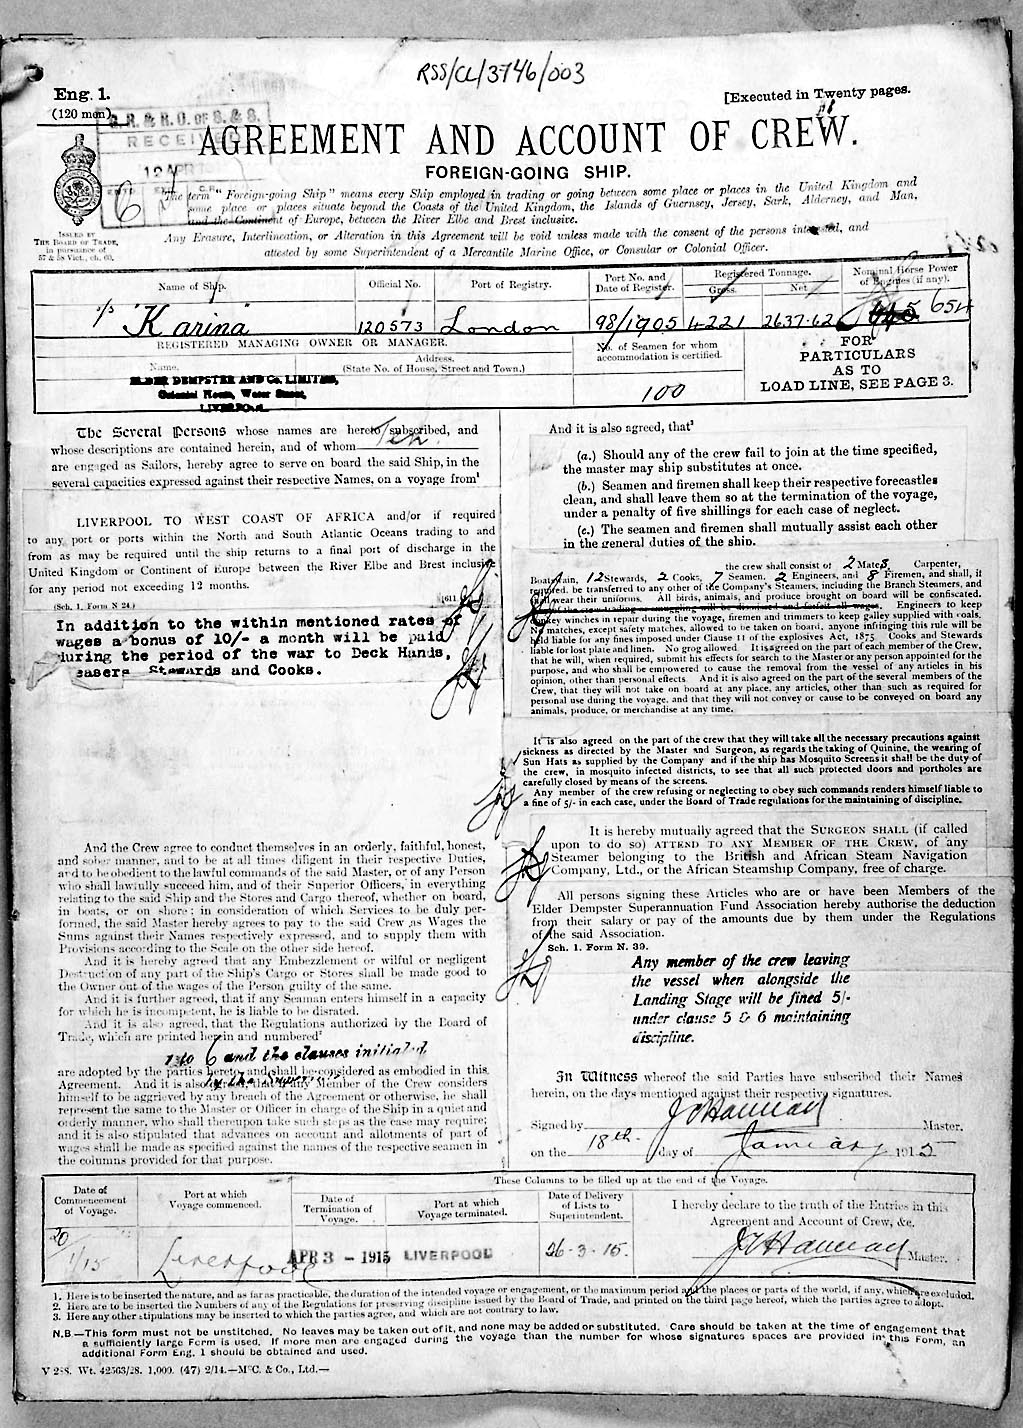 RSS/CL/3746/003
Eng. 1.
(120 men)
[Executed in Twenty pages.
G. R. & R. O. OF S. & S.
RECEIVED
12 APR
6
AGREEMENT AND ACCOUNT OF CREW.
FOREIGN-GOING SHIP.
The term "Foreign-going Ship" means every Ship employed in trading or going between some place or places in the United Kingdom and
some place or places situate beyond the Coasts of the United Kingdom, the Islands of Guernsey, Jersey, Sark, Alderney, and Man,
and the Continent of Europe, between the River Elbe and Brest inclusive.
Any Erasure, Interlineation, or Alteration in this Agreement will be void unless made with the consent of the persons interested, and
attested by some Superintendent of a Mercantile Marine Office, or Consular or Colonial Officer.
ISSUED BY
THE BOARD OF TRADE,
in pursuance of
57 & 58 Vict., ch. 60.
Name of Ship.
Official No.
Port of Registry.
Port No. and
Date of Register.
Registered Tonnage.
Gross.
Net
Nominal Horse Power
of Engines (if any).
s/s "Karina"
120573
London
98/1905
4221
2637.62
654
REGISTERED MANAGING OWNER OR MANAGER.
Name.
Address.
(State No. of House, Street and Town.)
No. of Seamen for whom
accommodation is certified.
FOR
PARTICULARS
AS TO
LOAD LINE, SEE PAGE 3.
ELDER DEMPSTER AND CO. LIMITED,
Colonial House, Water Street,
LIVERPOOL.
100
The Several Persons whose names are hereto subscribed, and
whose descriptions are contained herein, and of whom Ten
are engaged as Sailors, hereby agree to serve on board the said Ship, in the
several capacities expressed against their respective Names, on a voyage from¹
LIVERPOOL TO WEST COAST OF AFRICA and/or if required
to any port or ports within the North and South Atlantic Oceans trading to and
from as may be required until the ship returns to a final port of discharge in the
United Kingdom or Continent of Europe between the River Elbe and Brest inclusive
for any period not exceeding 12 months.
(Sch. 1, Form N 24.)
[611.
In addition to the within mentioned rates of
wages a bonus of 10/- a month will be paid
during the period of the war to Deck Hands,
Greasers Stewards and Cooks.
And the Crew agree to conduct themselves in an orderly, faithful, honest,
and sober manner, and to be at all times diligent in their respective Duties,
and to be obedient to the lawful commands of the said Master, or of any Person
who shall lawfully succeed him, and of their Superior Officers, in everything
relating to the said Ship and the Stores and Cargo thereof, whether on board,
in boats, or on shore; in consideration of which Services to be duly per-
formed, the said Master hereby agrees to pay to the said Crew as Wages the
Sums against their Names respectively expressed, and to supply them with
Provisions according to the Scale on the other side hereof.
And it is hereby agreed that any Embezzlement or wilful or negligent
Destruction of any part of the Ship's Cargo or Stores shall be made good to
the Owner out of the wages of the Person guilty of the same.
And it is further agreed, that if any Seaman enters himself in a capacity
for which he is incompetent, he is liable to be disrated.
And it is also agreed, that the Regulations authorized by the Board of
Trade, which are printed herein and numbered²
1 to 6 and the clauses initialed
are adopted by the parties hereto, and shall be considered as embodied in this
Agreement. And it is also agreed, that if any Member of the Crew considers
himself to be aggrieved by any breach of the Agreement or otherwise, he shall
represent the same to the Master or Officer in charge of the Ship in a quiet and
orderly manner, who shall thereupon take such steps as the case may require;
and it is also stipulated that advances on account and allotments of part of
wages shall be made as specified against the names of the respective seamen in
the columns provided for that purpose.
And it is also agreed, that³
(a.) Should any of the crew fail to join at the time specified,
the master may ship substitutes at once.
(b.) Seamen and firemen shall keep their respective forecastles
clean, and shall leave them so at the termination of the voyage,
under a penalty of five shillings for each case of neglect.
(c.) The seamen and firemen shall mutually assist each other
in the general duties of the ship.
the crew shall consist of 2 Mates, Carpenter,
Boatswain, 12 Stewards, 2 Cooks, 7 Seamen. 2 Engineers, and 8 Firemen, and shall, if
required, be transferred to any other of the Company's Steamers, including the Branch Steamers, and
shall wear their uniforms. All birds, animals, and produce brought on board will be confiscated.
Any of the crew trading or smuggling will be dismissed and forfeit all wages. Engineers to keep
donkey winches in repair during the voyage, firemen and trimmers to keep galley supplied with coals.
No matches, except safety matches, allowed to be taken on board, anyone infringing this rule will be
held liable for any fines imposed under Clause 11 of the explosives Act, 1875 Cooks and Stewards
liable for lost plate and linen. No grog allowed It is agreed on the part of each member of the Crew,
that he will, when required, submit his effects for search to the Master or any person appointed for the
purpose, and who shall be empowered to cause the removal from the vessel of any articles in his
opinion, other than personal effects. And it is also agreed on the part of the several members of the
Crew, that they will not take on board at any place, any articles, other than such as required for
personal use during the voyage, and that they will not convey or cause to be conveyed on board any
animals, produce, or merchandise at any time.
It is also agreed on the part of the crew that they will take all the necessary precautions against
sickness as directed by the Master and Surgeon, as regards the taking of Quinine, the wearing of
Sun Hats as supplied by the Company and if the ship has Mosquito Screens it shall be the duty of
the crew, in mosquito infected districts, to see that all such protected doors and portholes are
carefully closed by means of the screens.
Any member of the crew refusing or neglecting to obey such commands renders himself liable to
a fine of 5/- in each case, under the Board of Trade regulations for the maintaining of discipline.
It is hereby mutually agreed that the SURGEON SHALL (if called
upon to do so) ATTEND TO ANY MEMBER OF THE CREW, of any
Steamer belonging to the British and African Steam Navigation
Company, Ltd., or the African Steamship Company, free of charge.
All persons signing these Articles who are or have been Members of the
Elder Dempster Superannuation Fund Association hereby authorise the deduction
from their salary or pay of the amounts due by them under the Regulations
of the said Association.
Sch. 1. Form N. 39.
Any member of the crew leaving
the vessel when alongside the
Landing Stage will be fined 5/-
under clause 5 & 6 maintaining
discipline.
In Witness whereof the said Parties have subscribed their Names
herein, on the days mentioned against their respective signatures.
Signed by J V Hannay Master.
on the 18th day of January 1915
These Columns to be filled up at the end of the Voyage.
Date of
Commencement
of Voyage.
Port at which
Voyage commenced.
Date of
Termination of
Voyage.
Port at which
Voyage terminated.
Date of Delivery
of Lists to
Superintendent.
I hereby declare to the truth of the Entries in this
Agreement and Account of Crew, &c.
20/1/15
Liverpool
APR 3 - 1915
LIVERPOOL
26-3-15.
J V Hannay Master.
1. Here is to be inserted the nature, and as far as practicable, the duration of the intended voyage or engagement, or the maximum period and the places or parts of the world, if any, which are excluded.
2. Here are to be inserted the Numbers of any of the Regulations for preserving discipline issued by the Board of Trade, and printed on the third page hereof, which the parties agree to adopt.
3. Here any other stipulations may be inserted to which the parties agree, and which are not contrary to law.
N.B.—This form must not be unstitched. No leaves may be taken out of it, and none may be added or substituted. Care should be taken at the time of engagement that
a sufficiently large Form is used. If more men are engaged during the voyage than the number for whose signatures spaces are provided in this Form, an
additional Form Eng. 1 should be obtained and used.
V 288. Wt. 42563/28. 1,000. (47) 2/14.—McC. & Co., Ltd.—